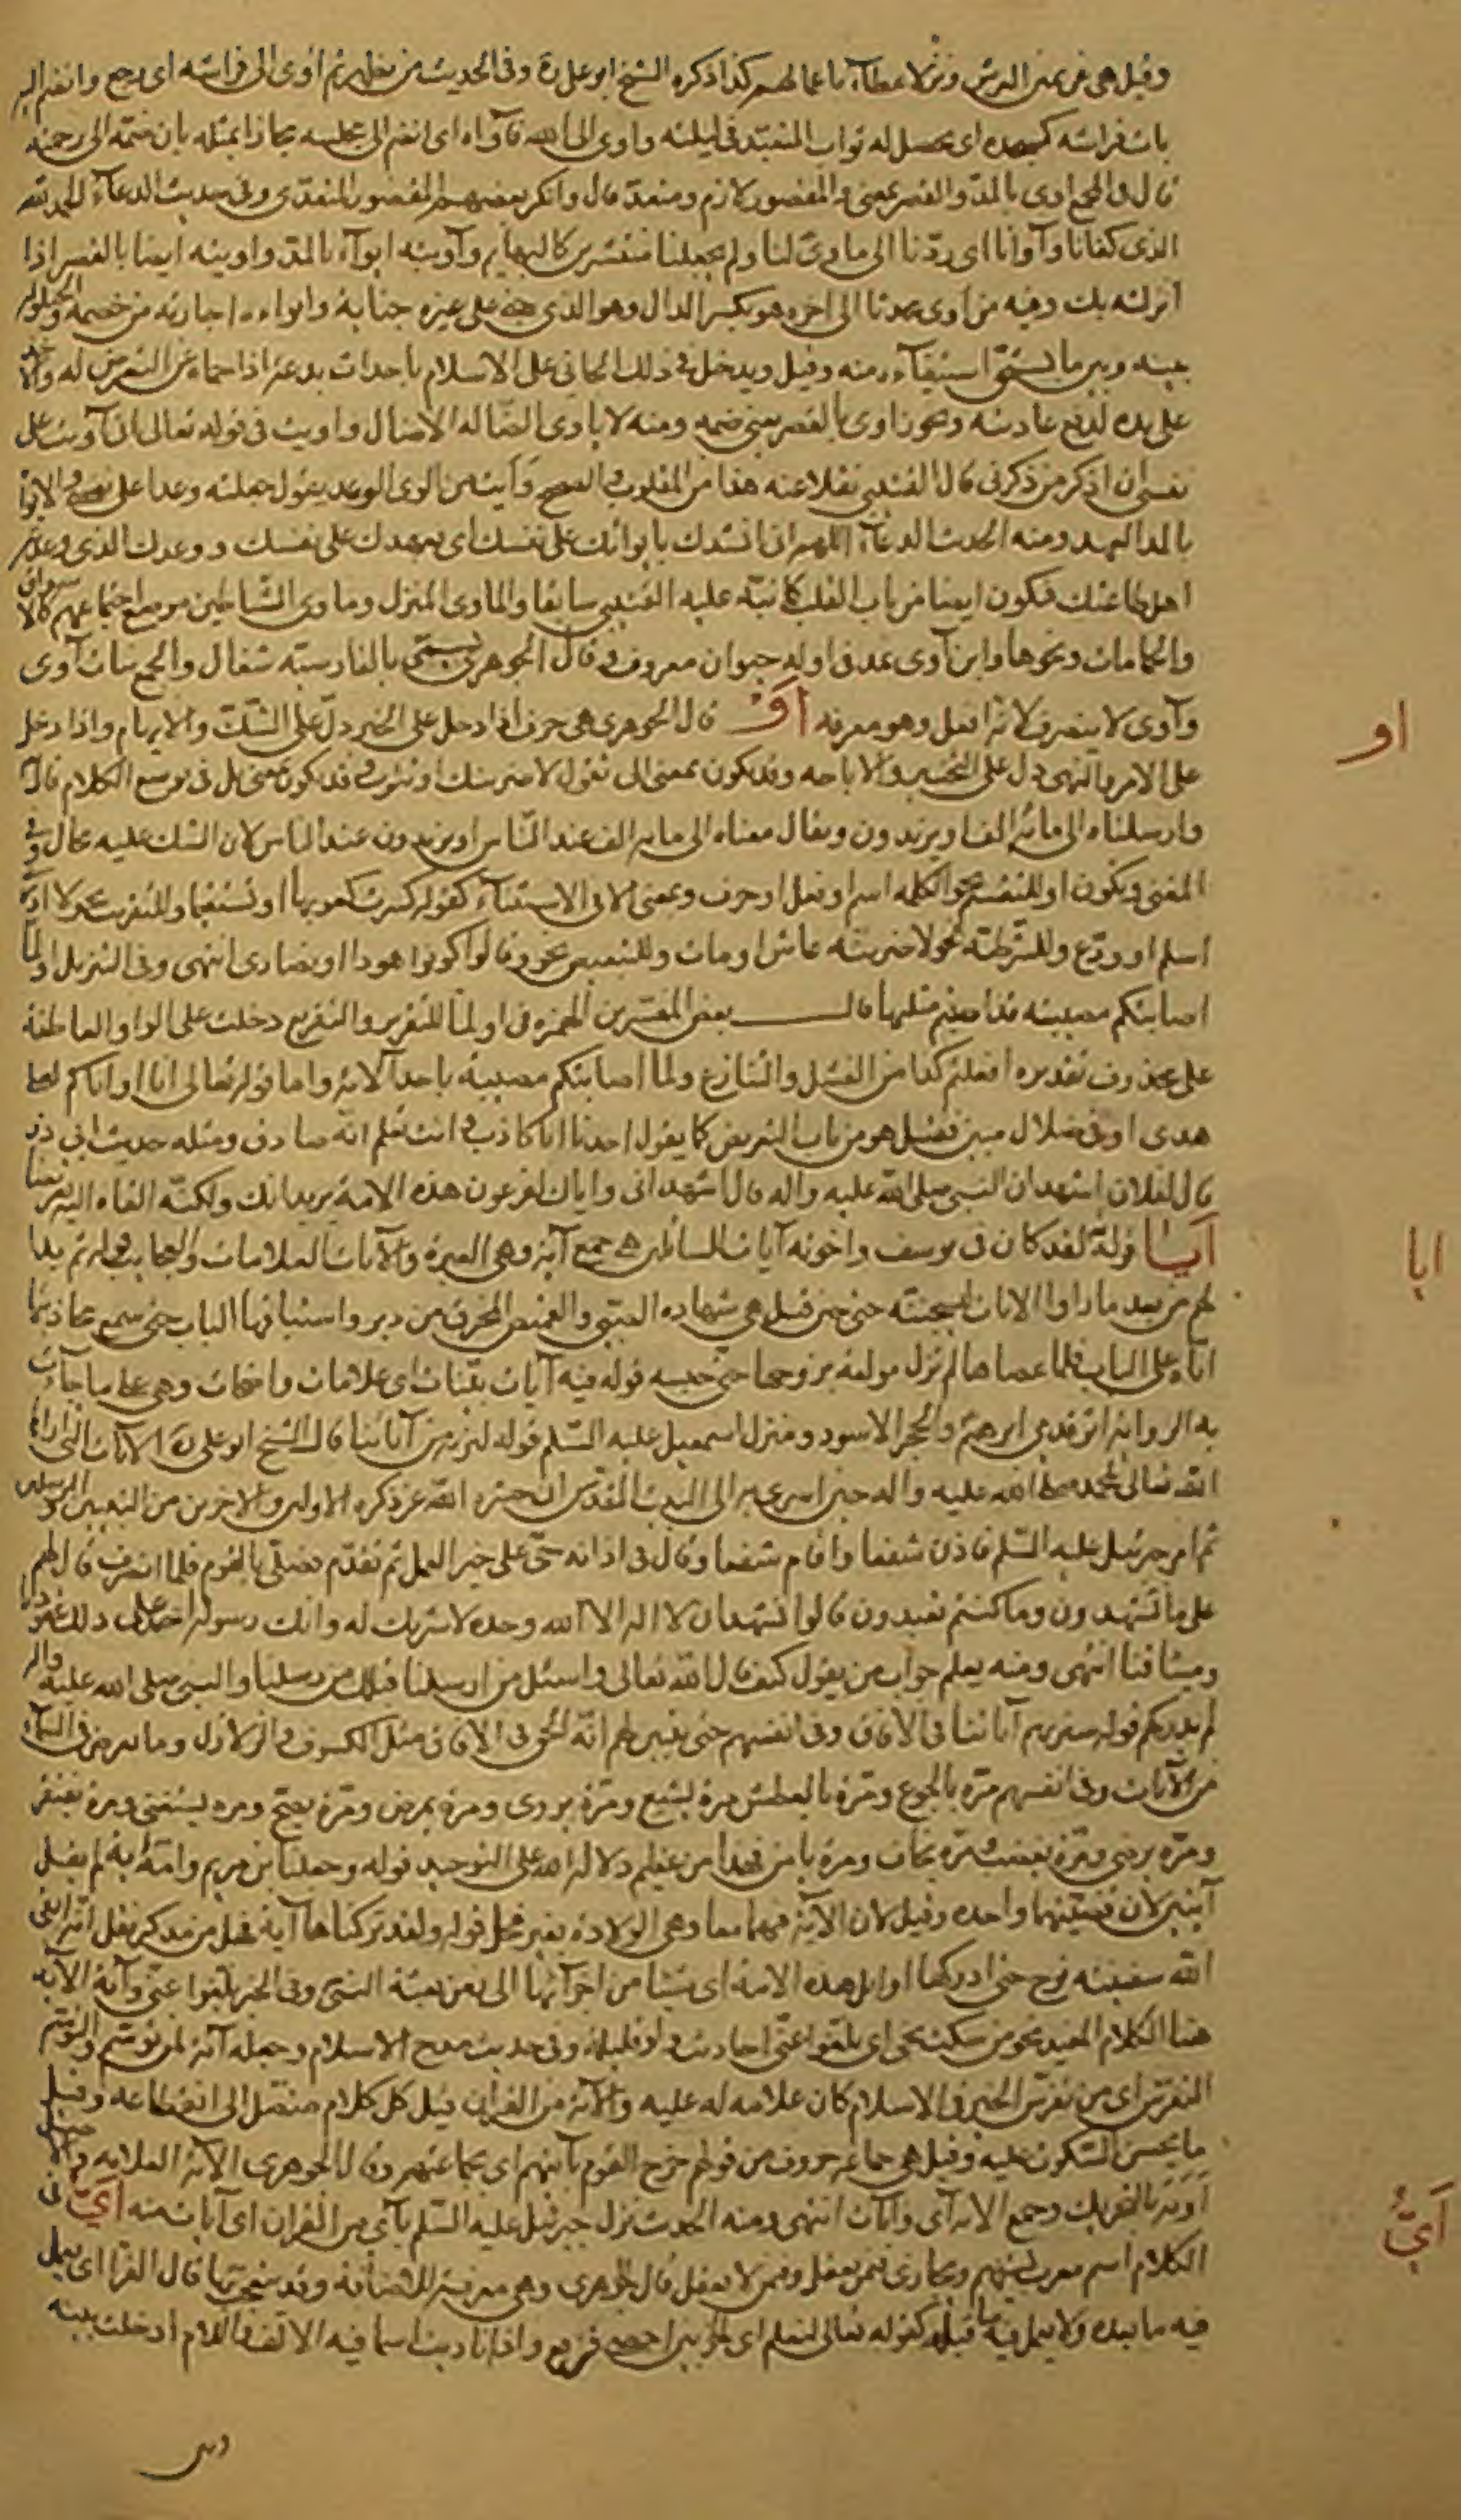 وقيل هي عن يمين العرش ونزلا عطاء باعمالهم كذا ذكره الشيخ ابو علي ره وفي الحديث من تطهر ثم اوى الى فراشه اى رجع وانضم اليه
بات فراشه كمسجده اى يحصل له ثواب المتعبد في ليلته واوى الى الله فآواه اى انضم الى مجلسه مجازا بمثله بان ضمه الى رحمته
قال في المجمع اوى بالمد والقصر بمعنى والمقصور لازم ومتعد قال وانكر بعضهم المقصور المتعدى وفي حديث الدعاء الحمد لله
الذى كفانا وآوانا اى ردنا الى ماوى لنا ولم يجعلنا منتشرين كالبهايم وآويته ايواء بالمد واويته ايضا بالقصر اذا
انزلته بك وفيه من اوى محدثا الى اخره هو بكسر الدال وهو الذى جنى على غيره جناية وايواءه اجارته من خصمه والحيلولة
بينه وبين ما يستحق استيفاءه منه وقيل ويدخل في ذلك الجاني على الاسلام باحداث بدعة اذا حماه عن التعرض له والاخذ
على يده لدفع عاديته ويجوز اوى بالقصر بمعنى ضمه ومنه لا ياوى الضالة الا ضال واويت في قوله تعالى انى آويت على
نفسى ان اذكر من ذكرنى قال القتيبى نقلا عنه هذا من المقلوب والصحيح وأيت من الوى الوعد يقول جعلته وعدا على نفسى والايواء
بالمد العهد ومنه الحديث الدعاء اللهم انى انشدك بايوائك على نفسك اى بعهدك على نفسك ووعدك الذى وعدته
اهل طاعتك فيكون ايضا من باب القلب كما نبه عليه القتيبى سابقا والماوى المنزل وماوى الشياطين موضع اجتماعهم كالاسواق
والحمامات ونحوها وابن آوى بمد في اوله حيوان معروف قال الجوهرى يسمى بالفارسية شغال والجمع بنات آوى
وآوى لا ينصرف لانه افعل وهو معرفة أو قال الجوهرى هي حرف اذا دخل على الخبر دل على الشك والابهام واذا دخل
على الامر والنهى دل على التخيير والاباحة وقد يكون بمعنى الى تقول لاضربنك او تتوب وقد يكون بمعنى بل في توسع الكلام قال تعالى
وارسلناه الى مائة الف او يزيدون ويقال معناه الى مائة الف عند الناس او يزيدون عند الناس لان الشك عليه محال وفي
المغنى ويكون او للتقسيم نحو الكلمة اسم او فعل او حرف وبمعنى الا في الاستثناء كقوله كسرت كعوبها او تستقيما وللتقريب نحو لا ادرى
اسلم او ودع وللشرطية نحو لاضربنه عاش او مات وللتبعيض نحو وقالوا كونوا هودا او نصارى انتهى وفي التنزيل اولما
اصابتكم مصيبة قد اصبتم مثليها قال بعض المفسرين الهمزة في اولما للتقرير والتقريع دخلت على الواو العاطفة
على محذوف تقديره افعلتم كذا من الفشل والتنازع ولما اصابتكم مصيبة باحد الاية واما قوله تعالى انا او اياكم لعلى
هدى او في ضلال مبين فقيل هو من باب التعريض كما يقول احدنا انا كاذب وانت تعلم انه صادق ومثله حديث ابى ذر
قال لفلان اشهد ان النبى صلى الله عليه واله قال اشهد انى واياك لفرعون هذه الامة يريد انك ولكنه القاه اليه تعريضا
أيا قوله لقد كان في يوسف واخوته آيات للسائلين هي جمع آية وهي العبرة والآيات العلامات والعجايب قوله ثم بدا
لهم من بعد ما راوا الايات ليسجننه حتى حين قيل هي شهادة الصبى والقميص المخرق من دبر واستباقهما الباب حتى سمع مجاذبتها
اياه على الباب فلما عصاها لم تزل مولعة بزوجها حتى حبسه قوله فيه آيات بينات اى علامات واضحات وهي على ما جاءت
به الرواية اثر قدمي ابرهيم والحجر الاسود ومنزل اسمعيل عليه السلم قوله لنريه من آياتنا قال الشيخ ابو على ره الايات التى اراها
الله تعالى لمحمد صلى الله عليه واله حين اسرى به الى البيت المقدس ان حشر الله عز ذكره الاولين والاخرين من النبيين والمرسلين
ثم امر جبرئيل عليه السلم فاذن شفعا واقام شفعا وقال في اذانه حى على خير العمل ثم تقدم فصلى بالقوم فلما انصرف قال لهم
على ما تشهدون وما كنتم تعبدون قالوا نشهد ان لا اله الا الله وحده لا شريك له وانك رسوله اخذ على ذلك عهودنا
وميثاقنا انتهى ومنه يعلم جواب من يقول كيف قال الله تعالى واسئل من ارسلنا قبلك من رسلنا والنبى صلى الله عليه واله
لم يدركهم قوله سنريهم آياتنا في الافاق وفي انفسهم حتى يتبين لهم انه الحق في الافاق مثل الكسوف والزلازل وما يعرض في السماء
من الآيات وفي انفسهم مرة بالجوع ومرة بالعطش مرة يشبع ومرة يروى ومرة يمرض ومرة يصح ومرة يستغنى ومرة يفتقر
ومرة يرضى ومرة يغضب مرة يخاف ومرة يامن فهذا من عظيم دلالة الله على التوحيد قوله وجعلنا ابن مريم وامه آية لم يقل
آيتين لان قصتهما واحدة وقيل لان الآية فيهما معا وهي الولادة بغير فحل قوله ولقد تركناها آية فهل من مدكر نقل انه ابقى
الله سفينة نوح حتى ادركها اوايل هذه الامة اى شيئا من اجزائها الى زمن بعثة النبى وفي الخبر بلغوا عنى ولو آية الآية
هنا الكلام المفيد نحو من سكت نجى اى بلغوا عنى احاديث ولو قليلة وفي حديث مدح الاسلام وجعله آية لمن توسم والتوسم
التفرس اى من تفرس الخير في الاسلام كان علامة له عليه والآية من القران قيل كل كلام متصل الى انقطاعه وقيل
ما يحسن السكوت عليه وقيل هي جماعة حروف من قولهم خرج القوم بآيتهم اى بجماعتهم وقال الجوهرى الآية العلامة والاصل
أوية بالتحريك وجمع الاية آى وايات انتهى ومنه الحديث نزل جبرئيل عليه السلم بآى من القران اى آيات منه أي في
الكلام اسم معرب يستفهم به ويجازى فيمن يعقل وفيمن لا يعقل قال الجوهرى وهي معرفة للاضافة وقد يتعجب بها قال الفرا اى يعمل
فيه ما بعده ولا يعمل فيه ما قبله كقوله تعالى لنعلم اى الحزبين احصى فرفع واذا ناديت اسما فيه الالف واللام ادخلت بينه
او
ايا
أيّ
وبين